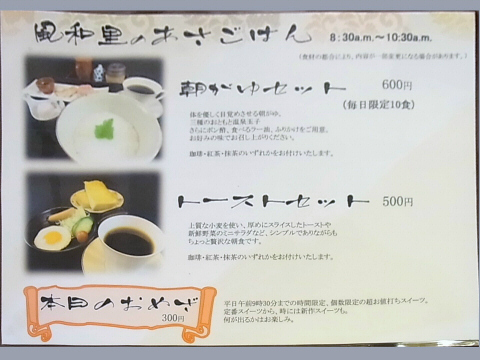 風和里のあさごはん 8:30a.m.～10:30a.m.
(食材の都合により、内容が一部変更になる場合があります。)
朝がゆセット 600円
(毎日限定10食)
体を優しく目覚めさせる朝がゆ、
三種のおともと温泉玉子
さらにポン酢、食べるラー油、ふりかけをご用意。
お好みの味でお召し上がりください。
珈琲・紅茶・抹茶のいずれかをお付けいたします。
トーストセット 500円
上質な小麦を使い、厚めにスライスしたトーストや
新鮮野菜のミニサラダなど、シンプルでありながらも
ちょっと贅沢な朝食です。
珈琲・紅茶・抹茶のいずれかをお付けいたします。
本日のおめざ
300円
平日午前9時30分までの時間限定、個数限定の超お値打ちスイーツ。
定番スイーツから、時には新作スイーツも。
何が出るかはお楽しみ。